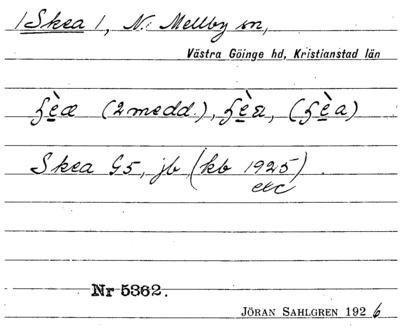 /Skea/, N. Mellby sn,
Västra Göinge hd, Kristianstad län
(2 medd.),
Skea G5, jb (kb 1925)
etc
Nr 5362.
JÖRAN SAHLGREN 1926